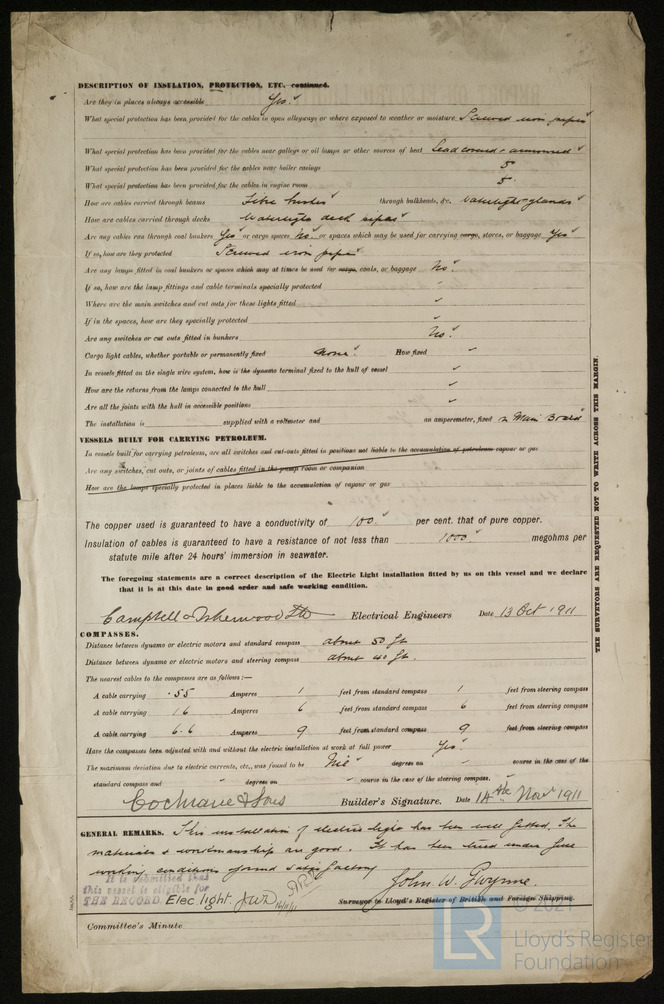 DESCRIPTION OF INSULATION, PROTECTION, ETC. continued.
Are they in places always accessible Yes.
What special protection has been provided for the cables in open alleyways or where exposed to weather or moisture Screwed iron pipes
What special protection has been provided for the cables near galleys or oil lamps or other sources of heat Lead covered + armoured
What special protection has been provided for the cables near boiler casings
What special protection has been provided for the cables in engine room
How are cables carried through beams Fibre bushes through bulkheads, &c. Watertight glands
How are cables carried through decks Watertight deck pipes
Are any cables run through coal bunkers Yes or cargo spaces No. or spaces which may be used for carrying cargo, stores, or baggage Yes
If so, how are they protected Screwed iron pipes
Are any lamps fitted in coal bunkers or spaces which may at times be used for cargo, coals, or baggage No.
If so, how are the lamp fittings and cable terminals specially protected
Where are the main switches and cut outs for these lights fitted
If in the spaces, how are they specially protected
Are any switches or cut outs fitted in bunkers No.
Cargo light cables, whether portable or permanently fixed None. How fixed
In vessels fitted on the single wire system, how is the dynamo terminal fixed to the hull of vessel
How are the returns from the lamps connected to the hull
Are all the joints with the hull in accessible positions
The installation is supplied with a voltmeter and an amperemeter, fixed on Main Board
VESSELS BUILT FOR CARRYING PETROLEUM.
In vessels built for carrying petroleum, are all switches and cut-outs fitted in positions not liable to the accumulation of petroleum vapour or gas
Are any switches, cut outs, or joints of cables fitted in the pump room or companion
How are the lamps specially protected in places liable to the accumulation of vapour or gas
The copper used is guaranteed to have a conductivity of 100. per cent. that of pure copper.
Insulation of cables is guaranteed to have a resistance of not less than 1000 megohms per
statute mile after 24 hours' immersion in seawater.
The foregoing statements are a correct description of the Electric Light installation fitted by us on this vessel and we declare
that it is at this date in good order and safe working condition.
Campbell & Isherwood Ltd Electrical Engineers Date 13 Oct 1911
COMPASSES.
Distance between dynamo or electric motors and standard compass about 50 ft
Distance between dynamo or electric motors and steering compass about 40 ft.
The nearest cables to the compasses are as follows:—
A cable carrying .55 Amperes 1 feet from standard compass 1 feet from steering compass
A cable carrying 16 Amperes 6 feet from standard compass 6 feet from steering compass
A cable carrying 6.6 Amperes 9 feet from standard compass 9 feet from steering compass
Have the compasses been adjusted with and without the electric installation at work at full power Yes.
The maximum deviation due to electric currents, etc., was found to be Nil degrees on course in the case of the
standard compass and degrees on course in the case of the steering compass.
Cochrane & Sons Builder's Signature. Date 14th Nov 1911
GENERAL REMARKS. This installation of electric light has been well fitted. The
materials & workmanship are good. It has been tried under full
working conditions & found satisfactory
It is submitted that
this vessel is eligible for
THE RECORD. Elec. light. JWD 16/11/11
John W. Gwynne.
Surveyor to Lloyd's Register of British and Foreign Shipping.
Committee's Minute
THE SURVEYORS ARE REQUESTED NOT TO WRITE ACROSS THIS MARGIN.
LR
© 2021
Lloyd's Register
Foundation